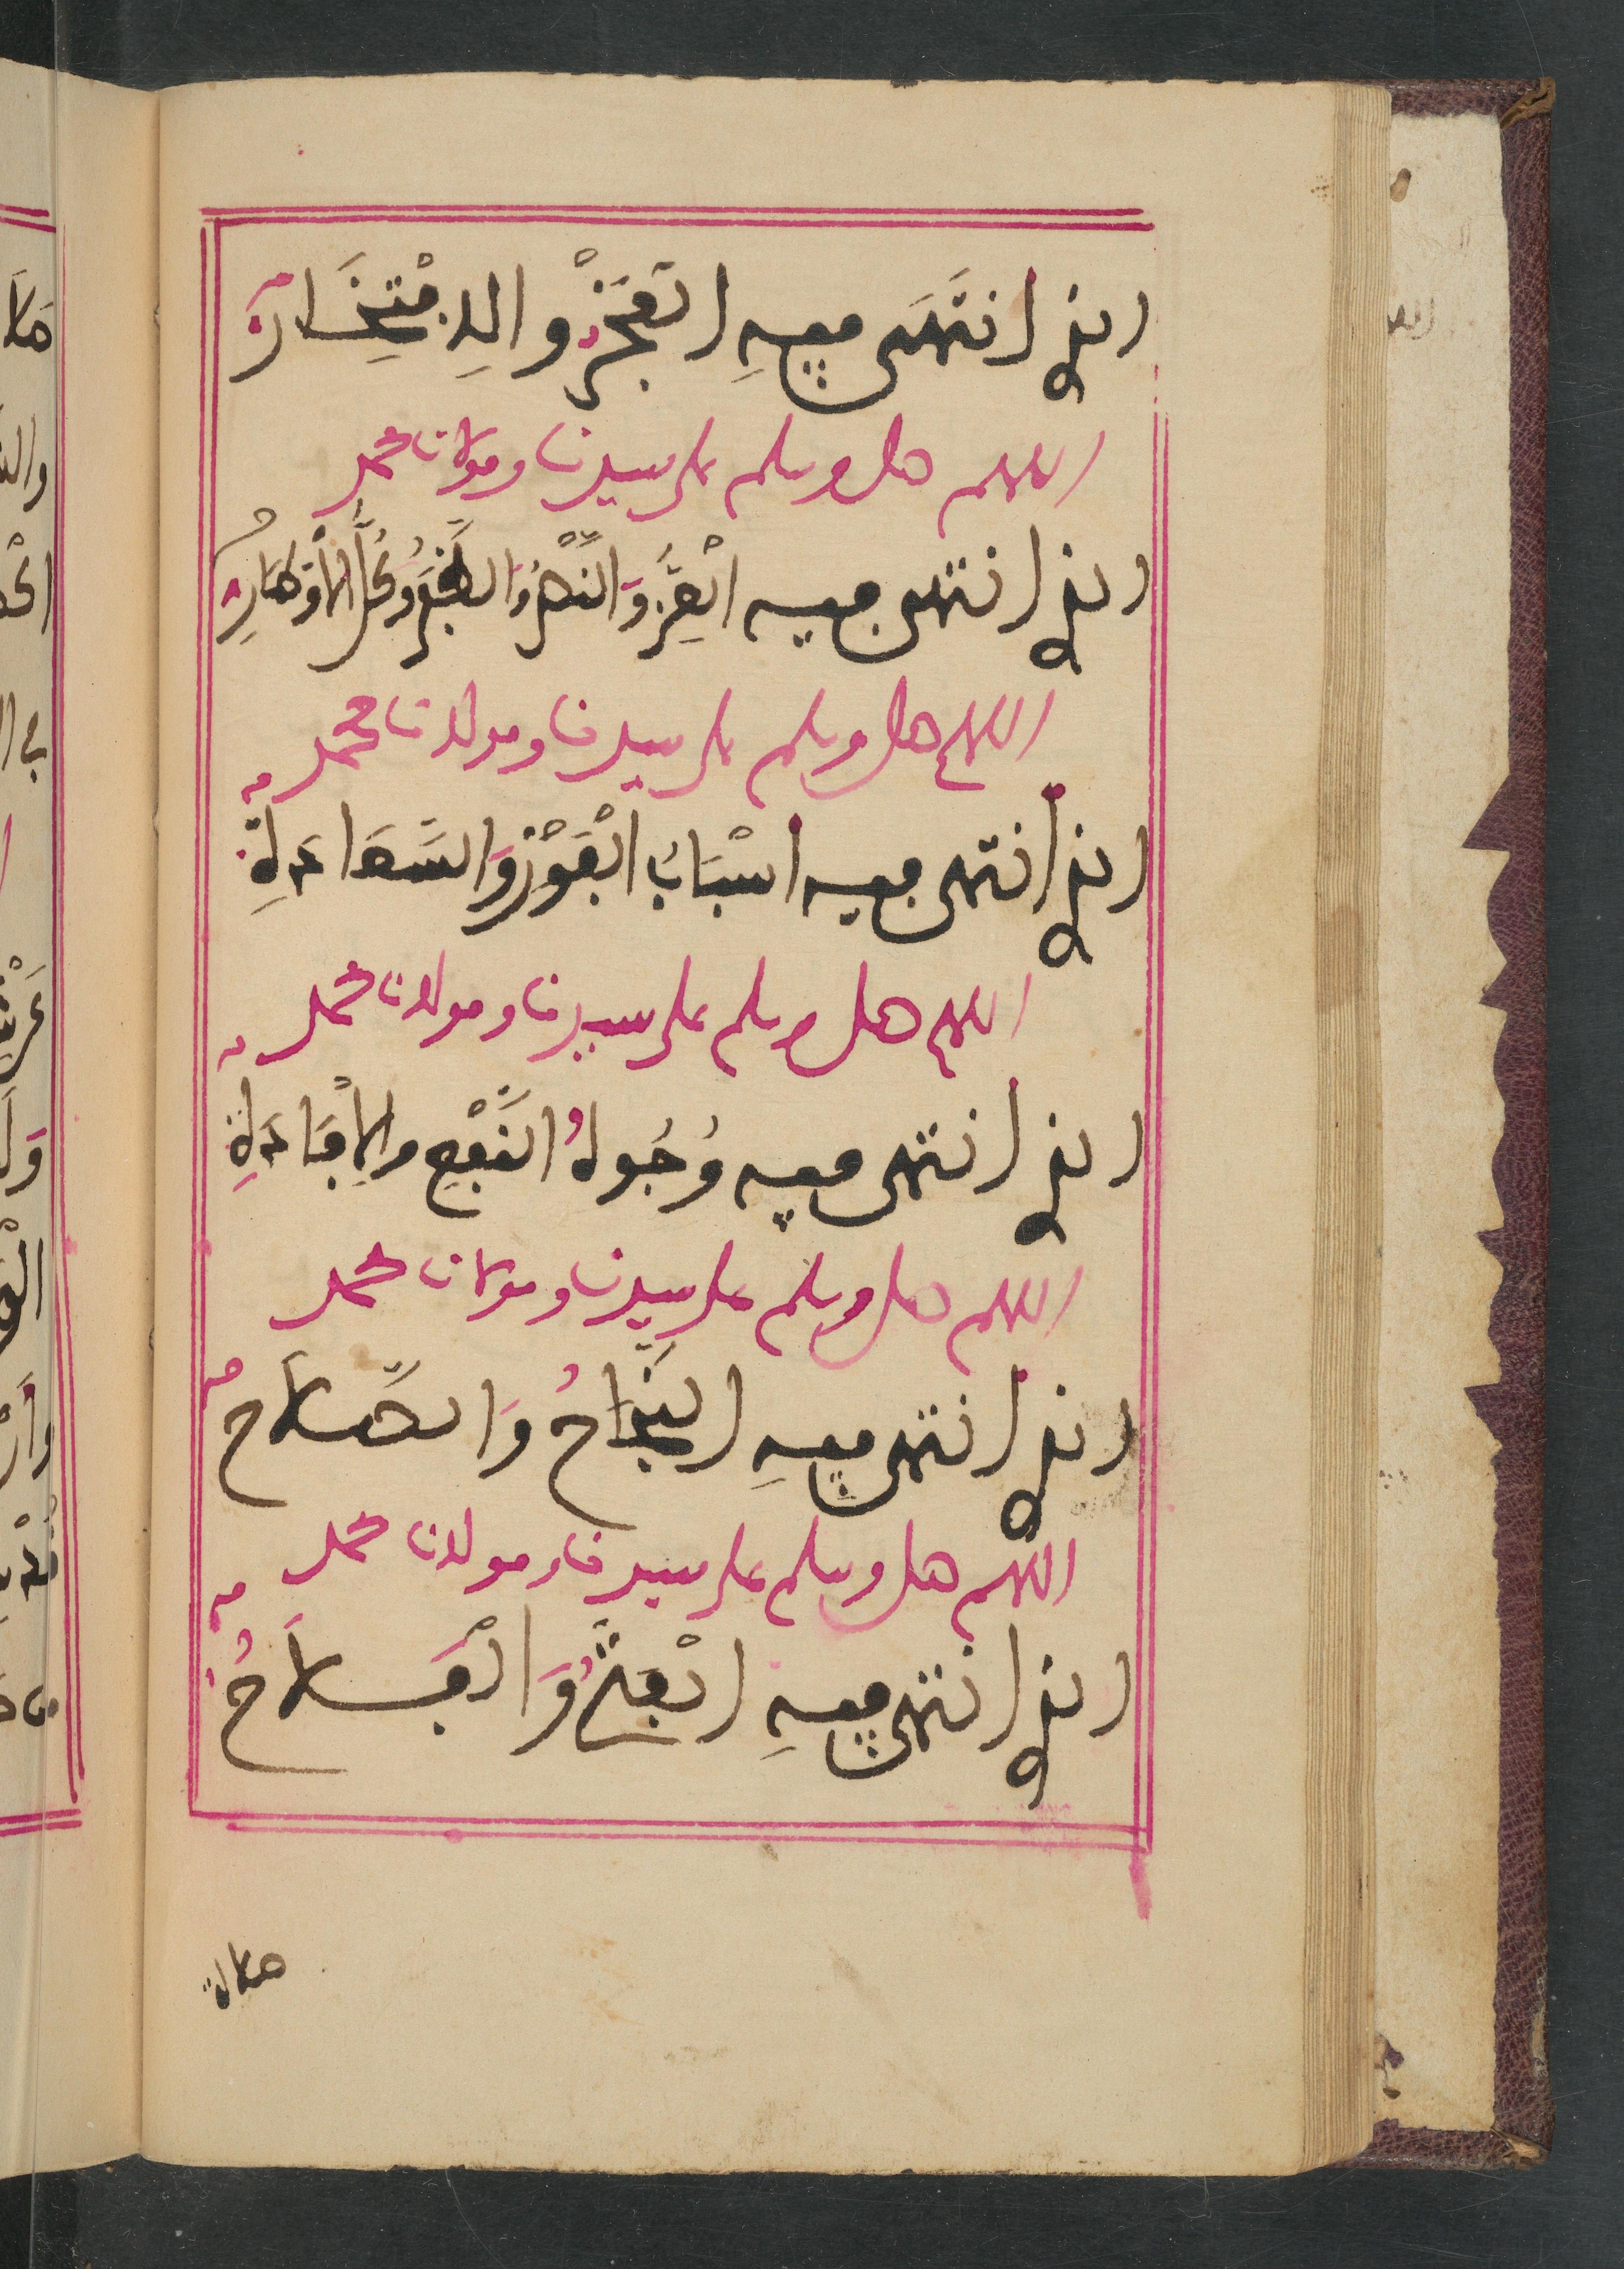 الذي انتَهَى فيهِ الفَخْرُ والاِفْتِخَارُ
اللهم صل وسلم على سيدنا ومولانا محمد
الذي انتهى فيه الْعِزُّ وَالنَّصْرُ وَالظَّفَرُ وَكُلُّ الاَوْطَارِ
اللهم صل وسلم على سيدنا ومولانا محمد
الذي انتهى فيه اسْبَابُ الْفَوْزِ وَالسَّعَادَةِ
اللهم صل وسلم على سيدنا ومولانا محمد
الذي انتهى فيه وُجُوهُ النَّفْعِ والاِفَادَةِ
اللهم صل وسلم على سيدنا ومولانا محمد
الذي انتهى فيهِ النَّجَاحُ وَالصَّلاَحُ
اللهم صل وسلم على سيدنا ومولانا محمد
الذي انتهى فيهِ الْفَتْحُ وَالْفَلاَحُ
صلاة